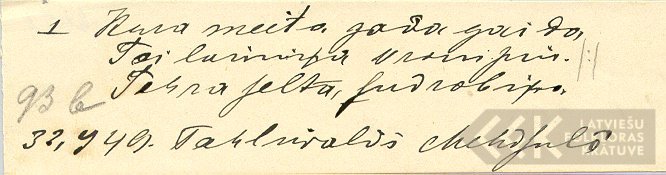 1 Kura meita goda gaida,
Tai laimiņa vroniņu.
Tehra selta, sudrobiņa.
93 b
32, 949. Tahlivaldis Mekschuls
LATVIEŠU FOLKLORAS KRĀTUVE